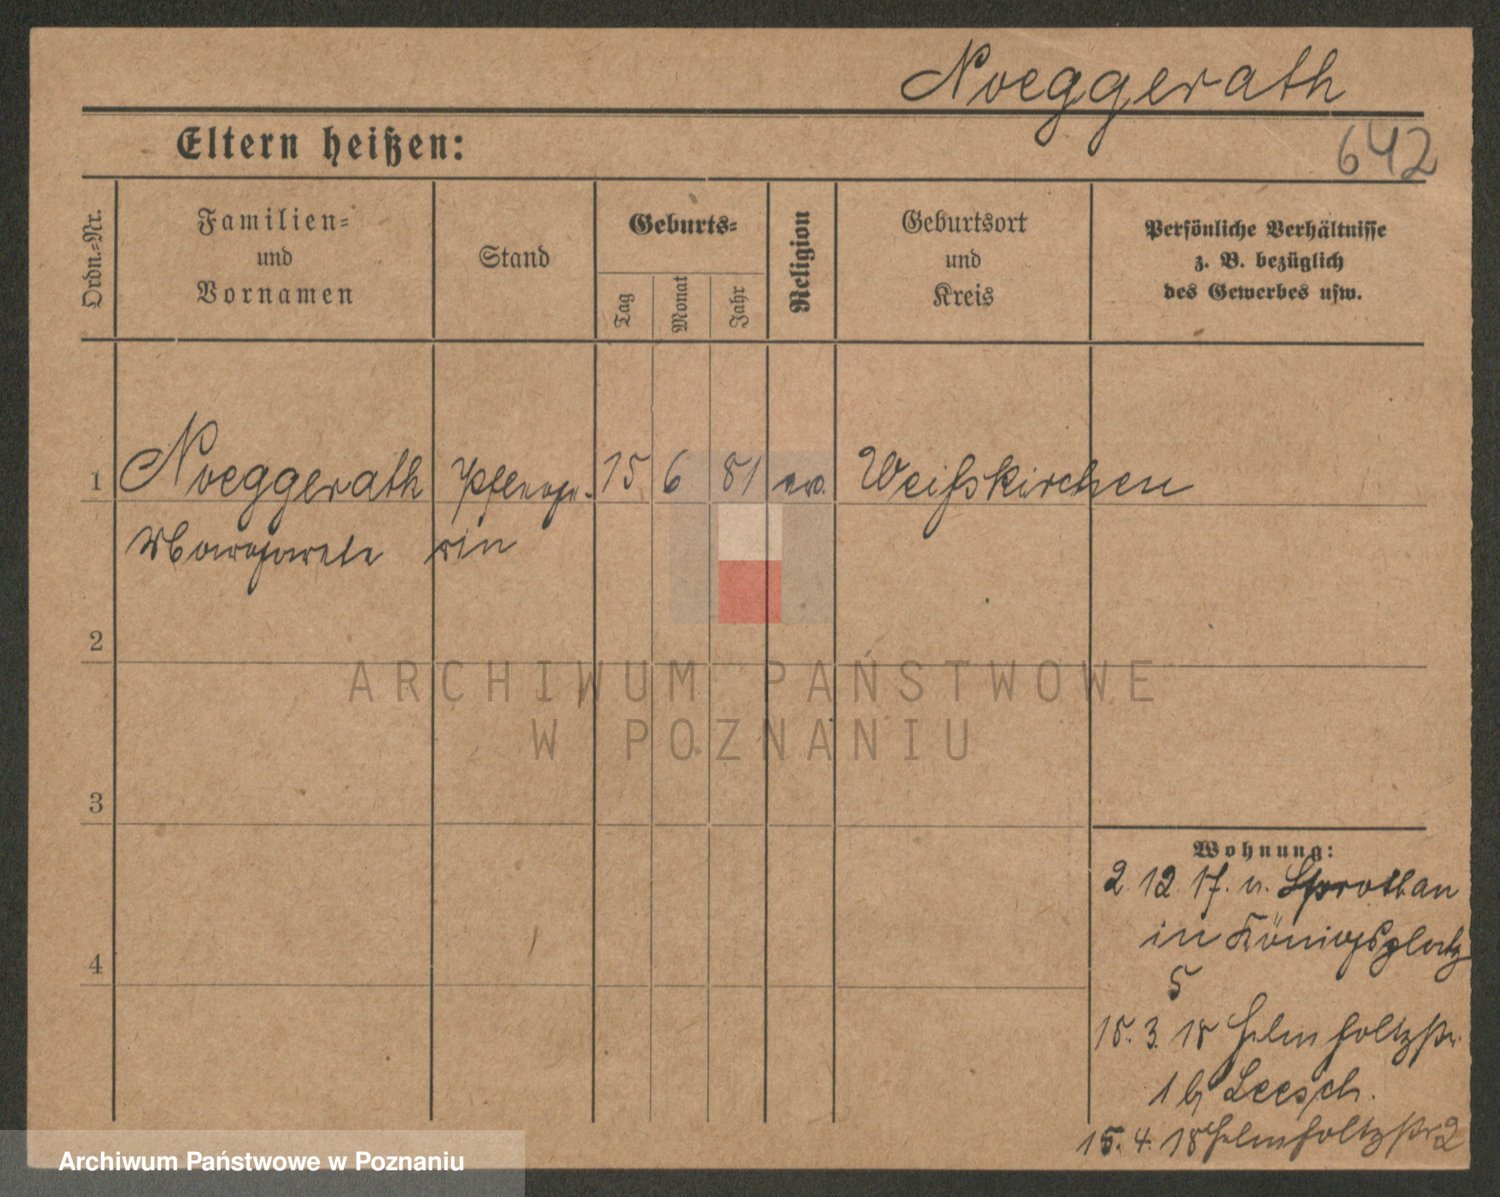 Noeggerath
642
Eltern heißen:
Ordn.-Nr.
Familien-
und
Vornamen
Stand
Geburts-
Tag
Monat
Jahr
Religion
Geburtsort
und
Kreis
Persönliche Verhältnisse
z. B. bezüglich
des Gewerbes usw.
1 Noeggerath Pflege- 15 6 81 ev. Weißkirchen
Margarete rin
2
3
4
Wohnung:
2. 12. 17. v. Sprottau
in Königsplatz
5
15. 3. 18 Helmholtzstr.
1 b/ Leesch.
15. 4. 18 Helmholtzstr 2
ARCHIWUM PAŃSTWOWE
W POZNANIU
Archiwum Państwowe w Poznaniu